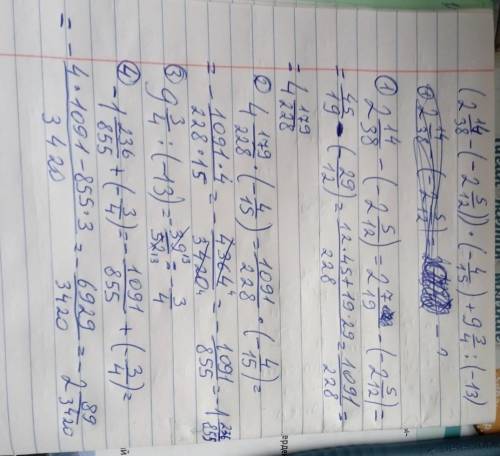 (2 14/38 - (-2 5/12)) · (-4/15) + 9 3/4 : (-13)
① 2 14/38 - (-2 5/12) = 2 7/19 - (-2 5/12) =
= 45/19 - (-29/12) = 12·45+19·29/228 = 1091/228 =
= 4 179/228
② 4 179/228 · (-4/15) = 1091/228 · (-4/15) =
= - 1091·4/228·15 = - 4364/3420 = - 1091/855 = -1 236/855
③ 9 3/4 : (-13) = - 39/52 = - 3/4
④ -1 236/855 + (-3/4) = - 1091/855 + (-3/4) =
= - 4·1091-855·3/3420 = - 6929/3420 = -2 89/3420